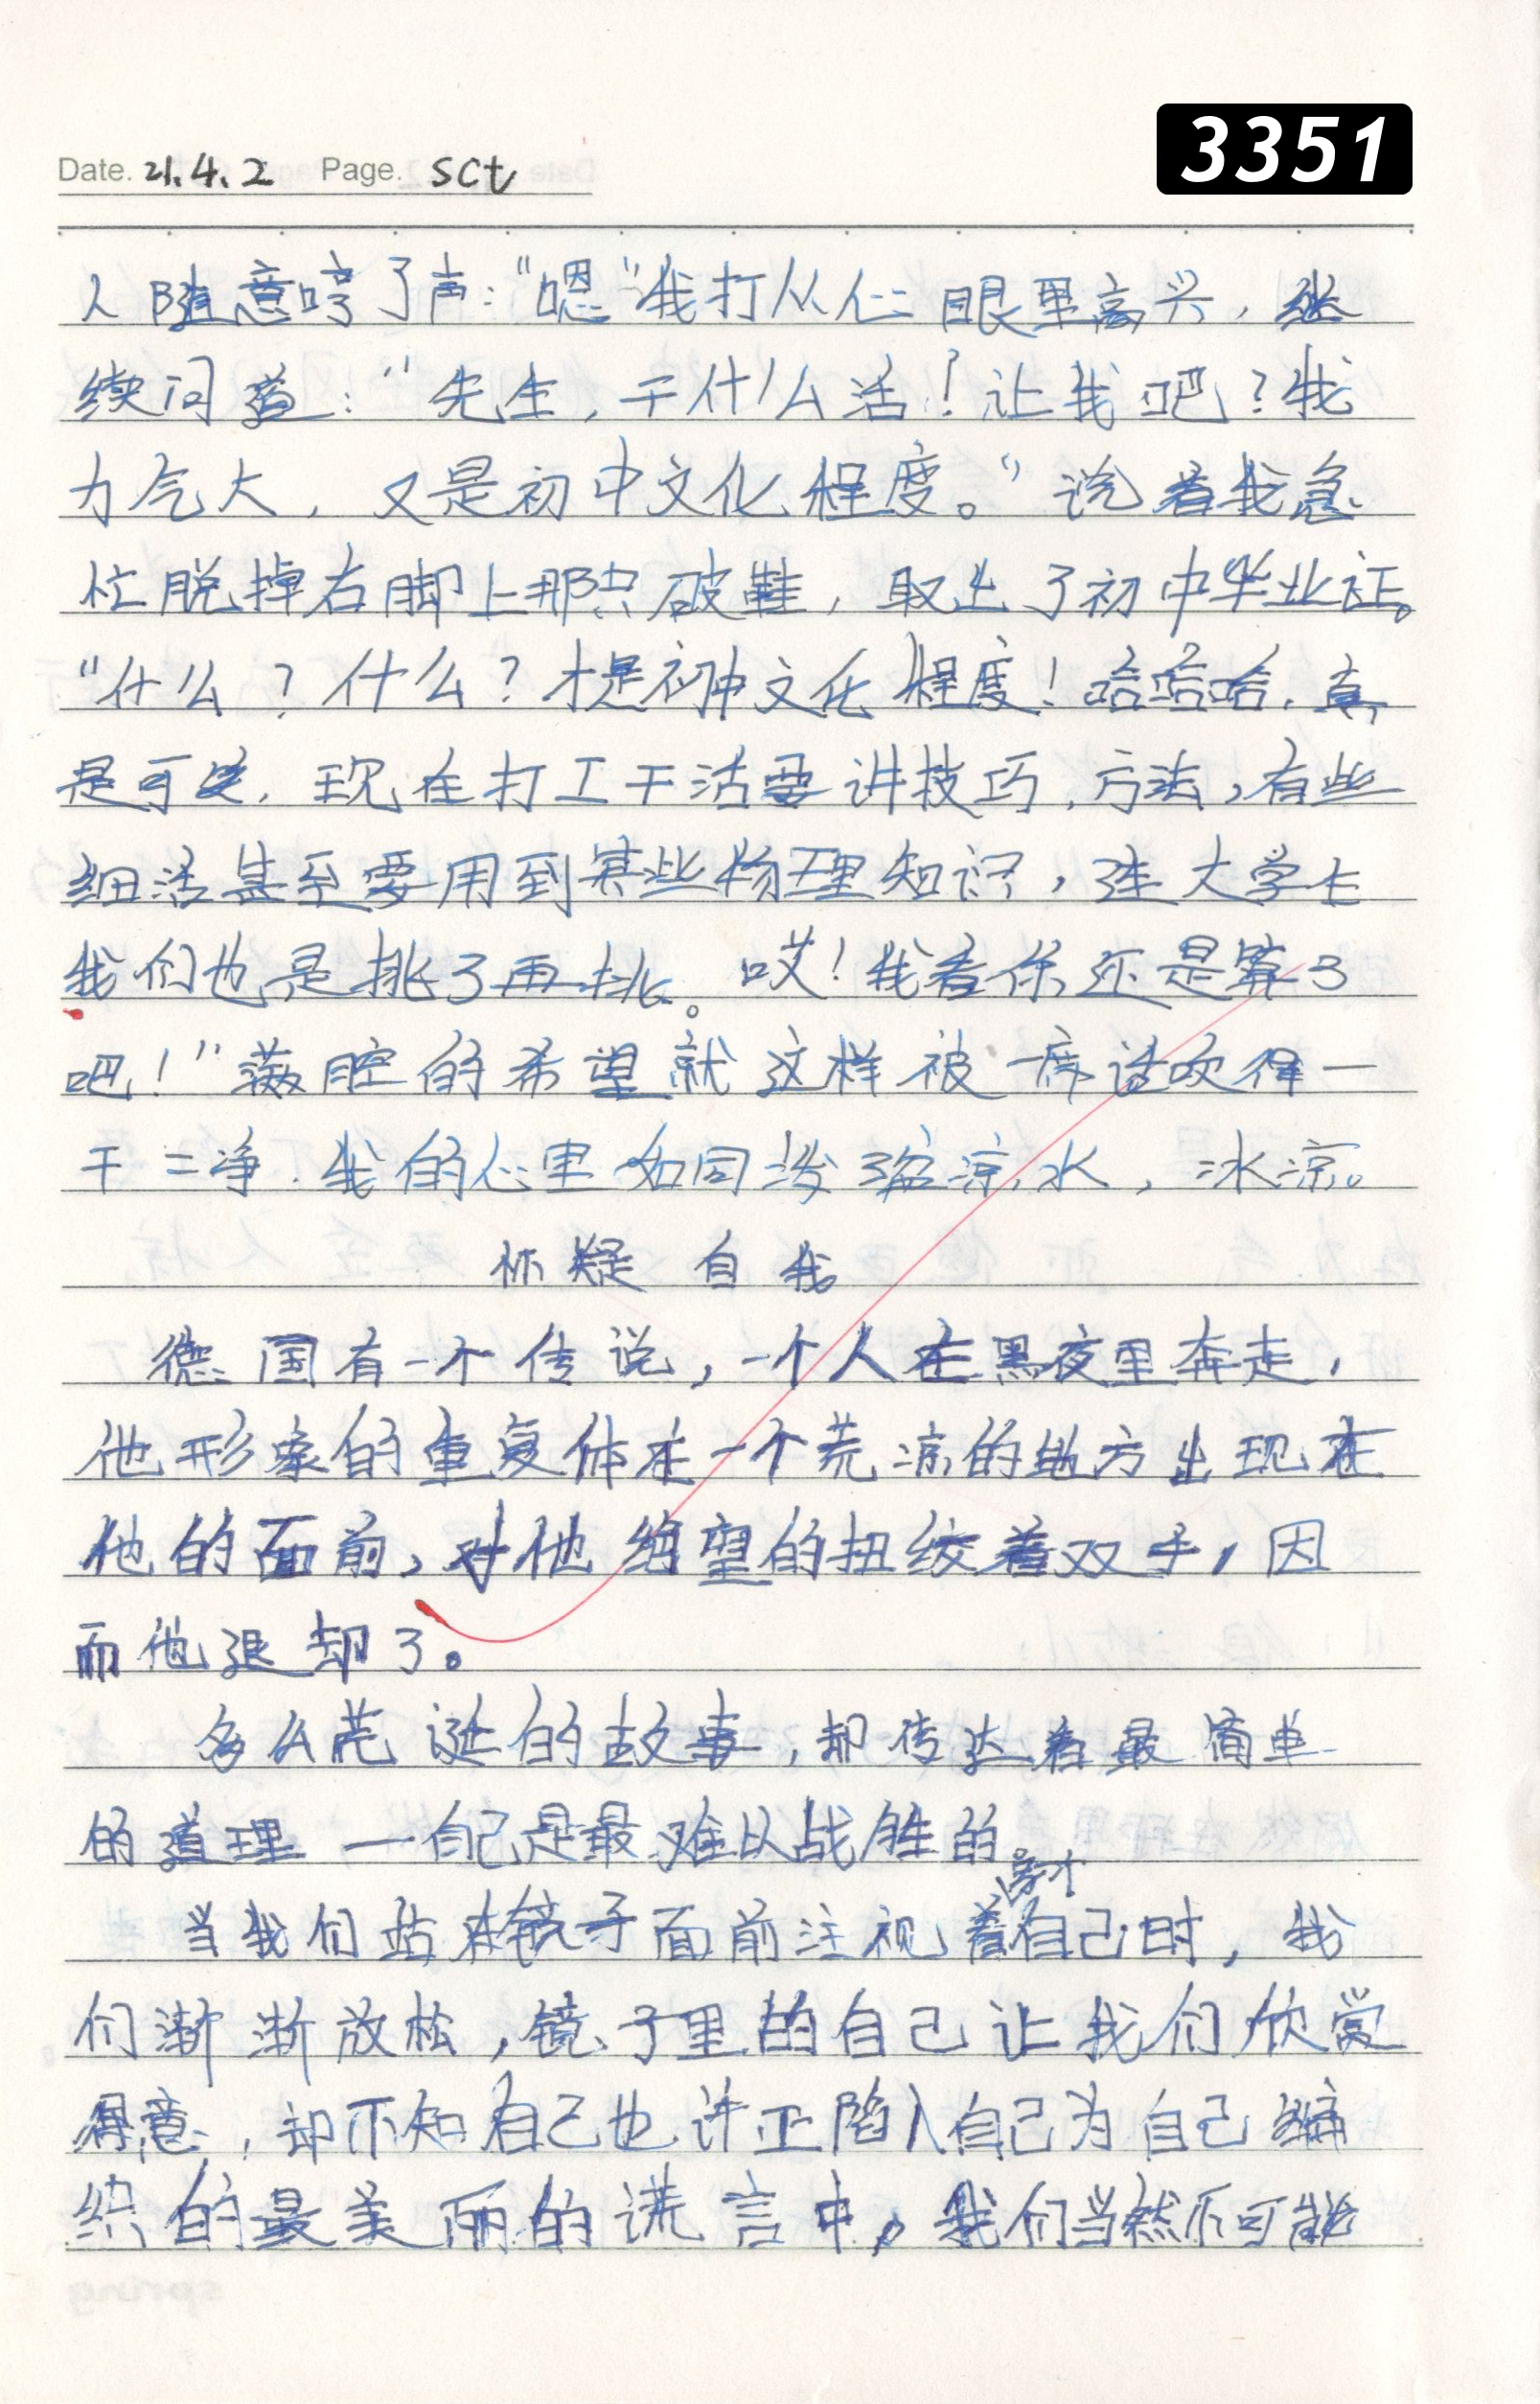 3351
Date. 21.4.2 Page. sct
人随意哼了声：“嗯”我打从心眼里高兴，继
续问道：“先生，干什么活！让我吧？我
力气大，又是初中文化程度。”说着我急
忙脱掉右脚上那只破鞋，取出了初中毕业证。
“什么？什么？才是初中文化程度！哈哈哈，真
是可笑，现在打工干活要讲技巧，方法，有些
细活甚至要用到某些物理知识，连大学生
我们也是挑了再挑。哎！我看你还是算了
吧！”满腔的希望就这样被一席话吹得一
干二净。我的心里如同泼了盆凉水，冰凉。
怀疑自我
德国有一个传说，一个人在黑夜里奔走，
他形象的重复体在一个荒凉的地方出现在
他的面前，对他绝望的扭绞着双手，因
而他退却了。
多么荒诞的故事，却传达着最简单
的道理 — 自己是最难以战胜的。
当我们站在镜子面前注视着那个自己时，我
们渐渐放松，镜子里的自己让我们欣赏
得意，却不知自己也许正陷入自己为自己编
织的最美丽的谎言中，我们当然不可能